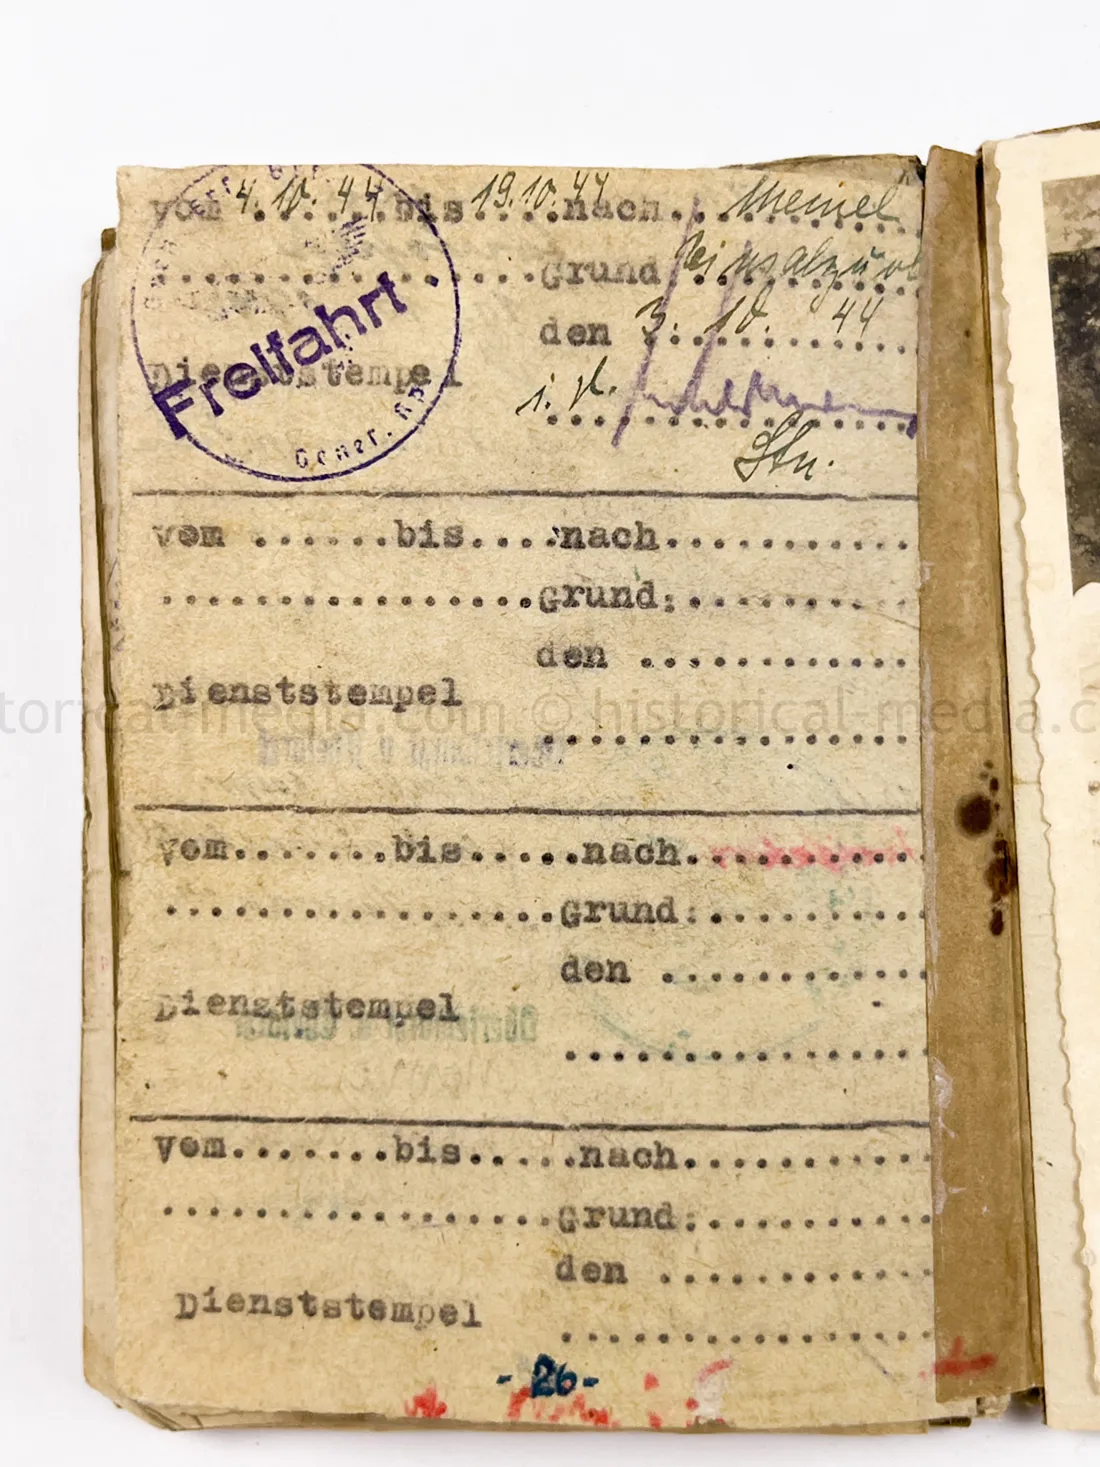 vom 4.10.44 bis 19.10.44 nach Memel
Grund
den 3. 10. 44
Dienststempel
Freifahrt
i. A.
vom ......bis....nach...........
..................Grund:...........
den ............
Dienststempel
torical-media.com © historical-media.c
vom.......bis.....nach...........
..................Grund:...........
den ............
Dienststempel
vom.......bis.....nach...........
..................Grund:...........
den ............
Dienststempel
-26-